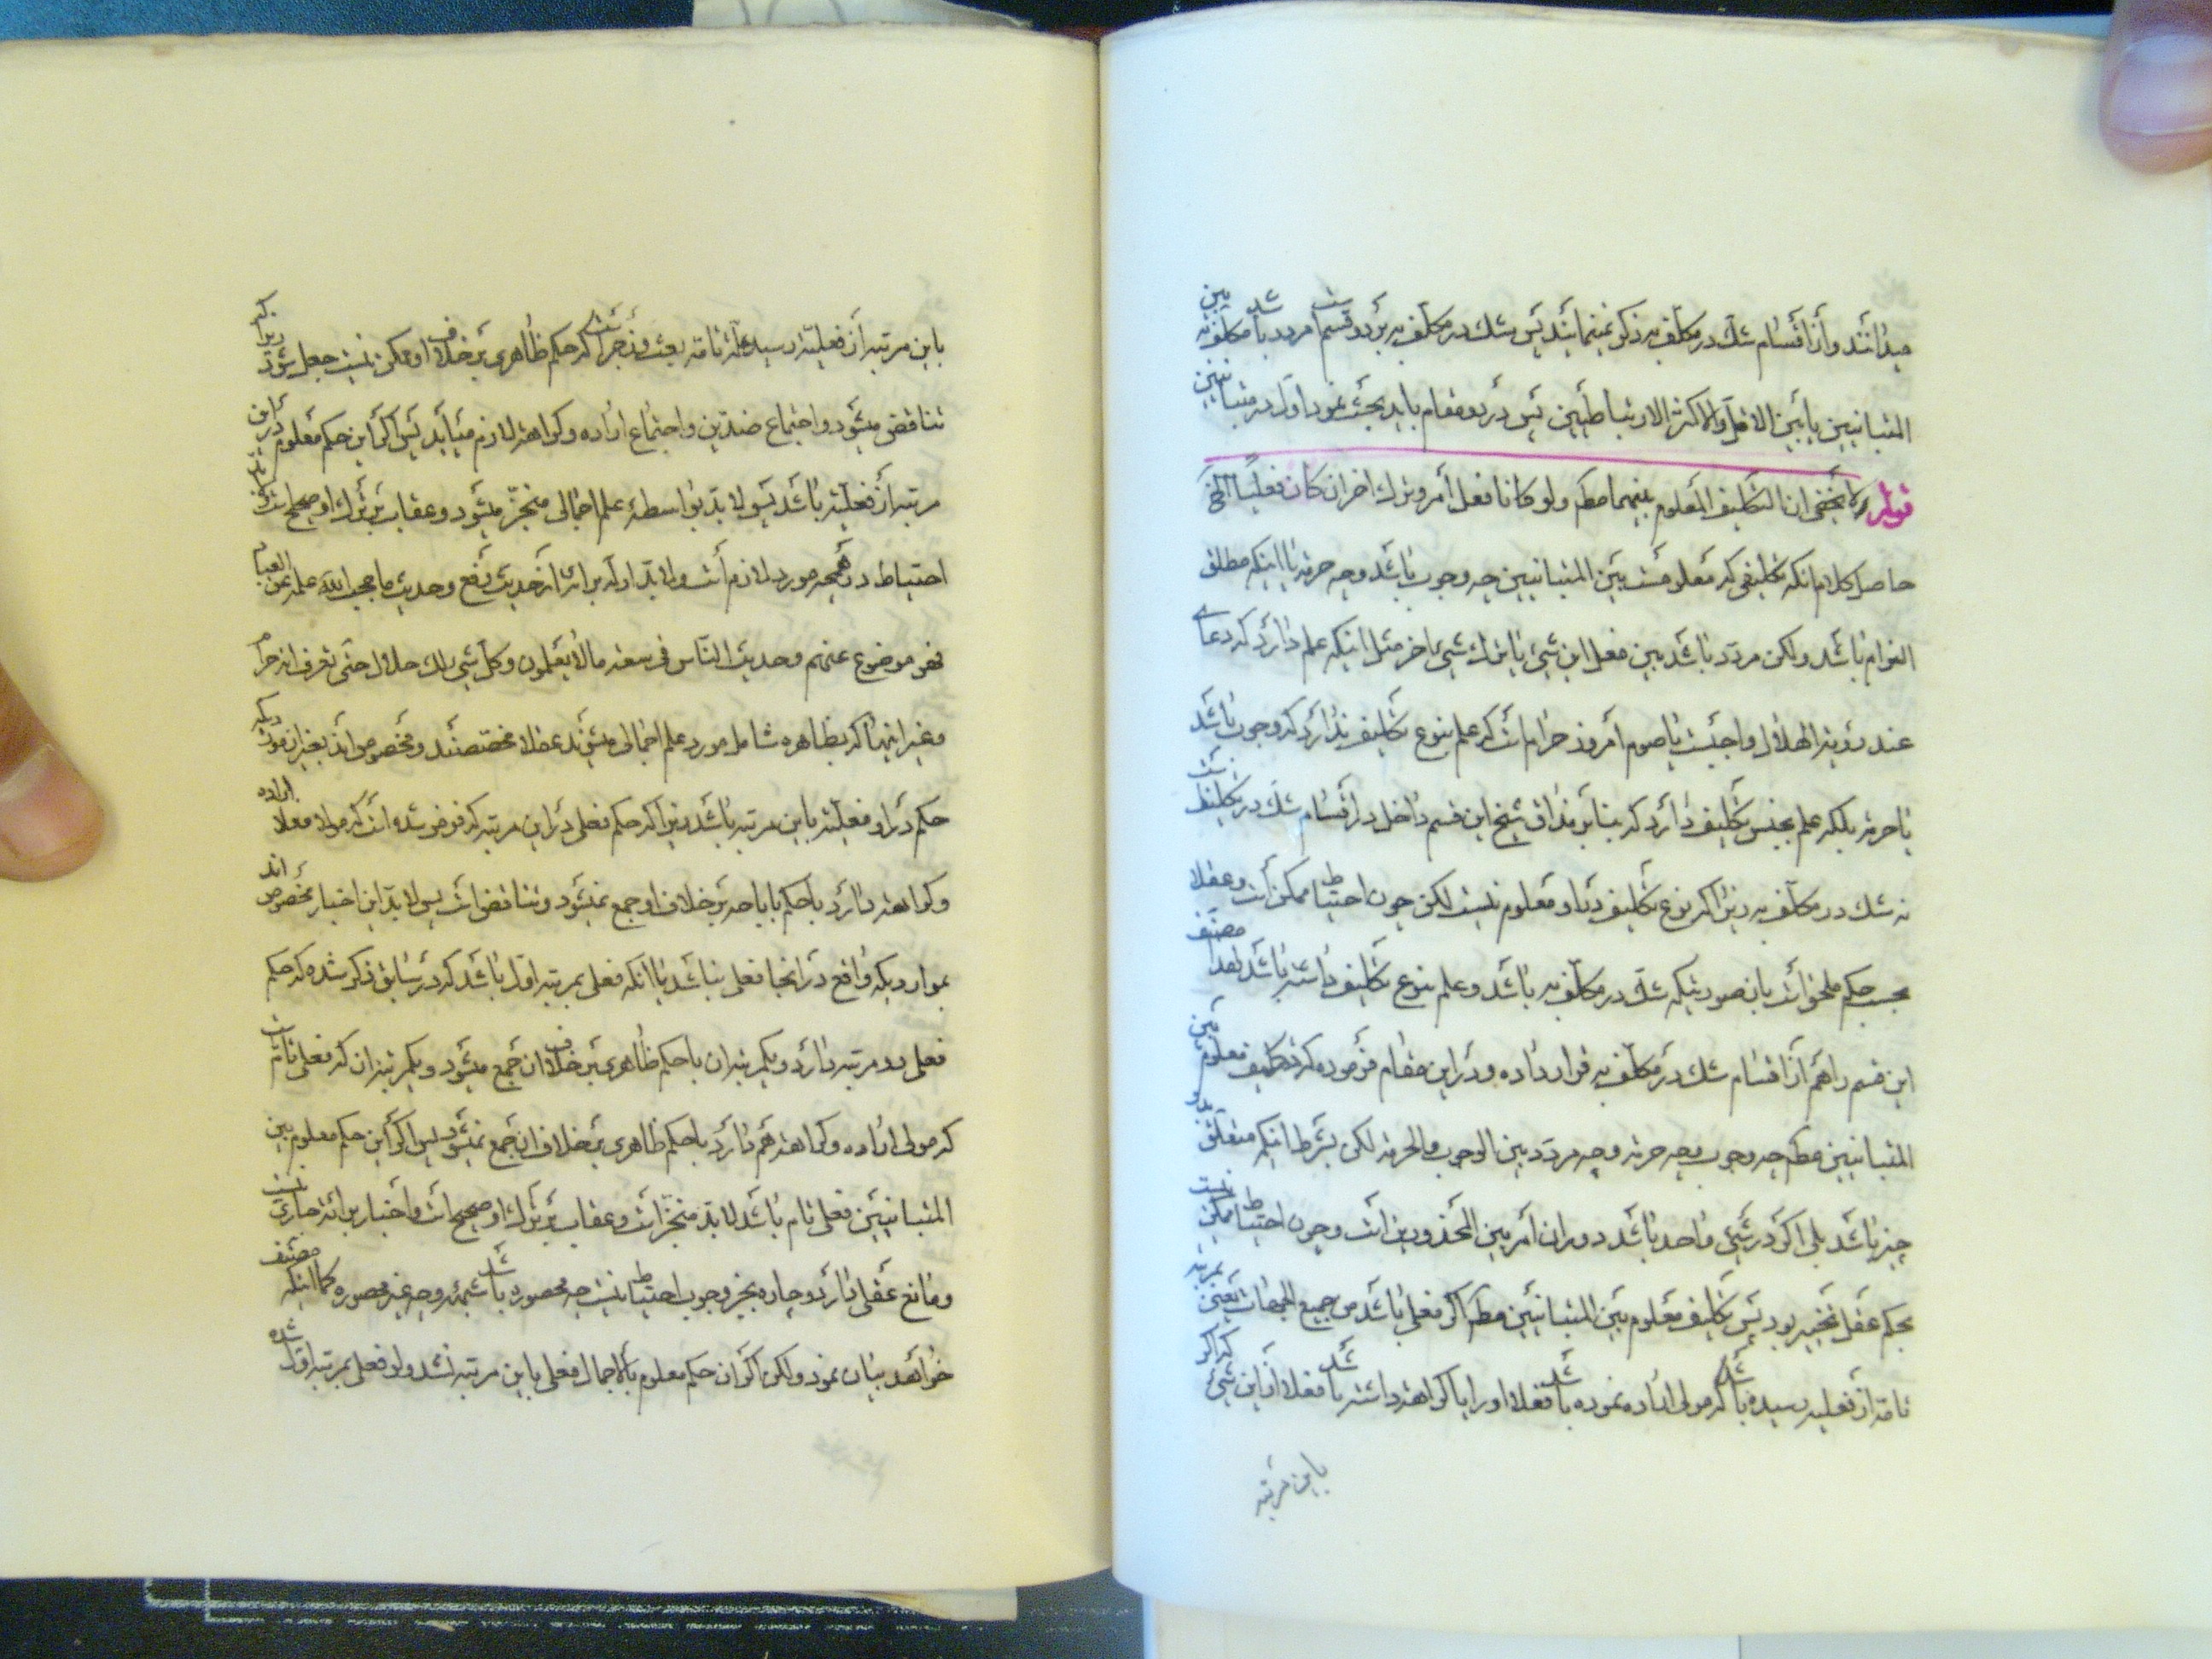 میدانند و از اقسام شک در مکلف به ذکر نمینمایند پس شک در مکلف به بر دو قسم است مردد باشد مکلف به بین
المتباینین یا بین الاقل والاکثر الارتباطیین پس در دو مقام باید بحث نمود اول در متباینین
قوله لا یخفی ان التکلیف المعلوم بینهما مطم ولو کانا فعل امر وترک اخر ان کان فعلیا الخ
حاصل کلام انکه تکلیفی که معلومست بین المتباینین چه وجوب باشد و چه حرمة یا اینکه مطلق
الزام باشد ولکن مردد باشد بین فعل این شیئ یا ترک شیئ اخر مثل اینکه علم دارد که دعاء
عند رؤیة الهلال واجبست یا صوم امروز حرام است که علم بنوع تکلیف ندارد که وجوب باشد
یا حرمة بلکه علم بجنس تکلیف دارد که بنا بر مذاق شیخ این قسم داخل در اقسام شک در تکلیف است
نه شک در مکلف به زیرا که نوع تکلیف در او معلوم نیست لکن چون احتیاط ممکن است وعقلا
بحسب حکم ملحق است بان صورتیکه شک در مکلف به باشد وعلم بنوع تکلیف داشته باشد لهذا مصنف
این قسم را هم از اقسام شک در مکلف به قرار داده و در این مقام فرموده که تکلیف معلوم بین
المتباینین مطم چه وجوب وچه حرمة وچه مردد بین الوجوب والحرمة لکن بشرط اینکه متعلق بدو
چیز باشد بلی اکر در شیئ واحد باشد دوران امر بین المحذورین است وچون احتیاط ممکن نیست
بحکم عقل تخییر بود پس تکلیف معلوم بین المتباینین مطم اکر فعلی باشد من جمیع الجهات یعنی بمرتبه
تامة از فعلیه رسیده باشد که مولی اراده نموده باشد فعلا او را یا کراهة داشته باشد فعلا از این شیئ که اکر
باین مرتبه
باین مرتبه از فعلیة رسید علة تامة بعث وزجر است که حکم ظاهری بر خلاف او ممکن نیست جعل شود زیرا که
تناقض میشود و اجتماع ضدین و اجتماع اراده وکراهة لازم میاید پس اکر این حکم معلوم در این
مرتبه از فعلیة باشد پس لا بد بواسطه علم اجمالی منجّز میشود وعقاب بر ترک او صحیح است
احتیاط در همچه مورد لازم است ولا بد ادله برائة از حدیث رفع وحدیث ما حجب الله علمه عن العباد
فهو موضوع عنهم وحدیث الناس فی سعة مالا یعلمون وکل شی لک حلال حتی تعرف انه حرام
وغیر اینها که بظاهره شامل مورد علم اجمالی میشوند عقلا مخصصند ومخصوص اند بغیر از موردیکه
حکم در او فعلیة باین مرتبه باشد زیرا که حکم فعلی در این مرتبه که فرض شده است که مولا فعلا اراده
وکراهة دارد با حکم باباحه بر خلاف او جمع نمیشود وتناقض است پس لا بد این اخبار مخصوص اند
بمواردیکه واقع در انجا فعلی نباشد یا انکه فعلی بمرتبه اول باشد که در سابق ذکر شده که حکم
فعلی دو مرتبه دارد ویکمرتبه ان با حکم ظاهری بر خلاف ان جمع میشود ویکمرتبه ان که فعلی تام است
که مولی اراده وکراهة هم دارد با حکم ظاهری بر خلاف ان جمع نمیشود پس اکر این حکم معلوم بین
المتباینین فعلی تام باشد لا بد منجّز است وعقاب بر ترک او صحیح است واخبار برائة جاری نیست
ومانع عقلی دارد وچاره بجز وجوب احتیاط نیست چه محصوره باشد شبهه وچه غیر محصوره کما اینکه مصنف
خواهد بیان نمود ولکن اکر ان حکم معلوم بالاجمال فعلی باین مرتبه نشد ولو فعلی بمرتبه اول شده